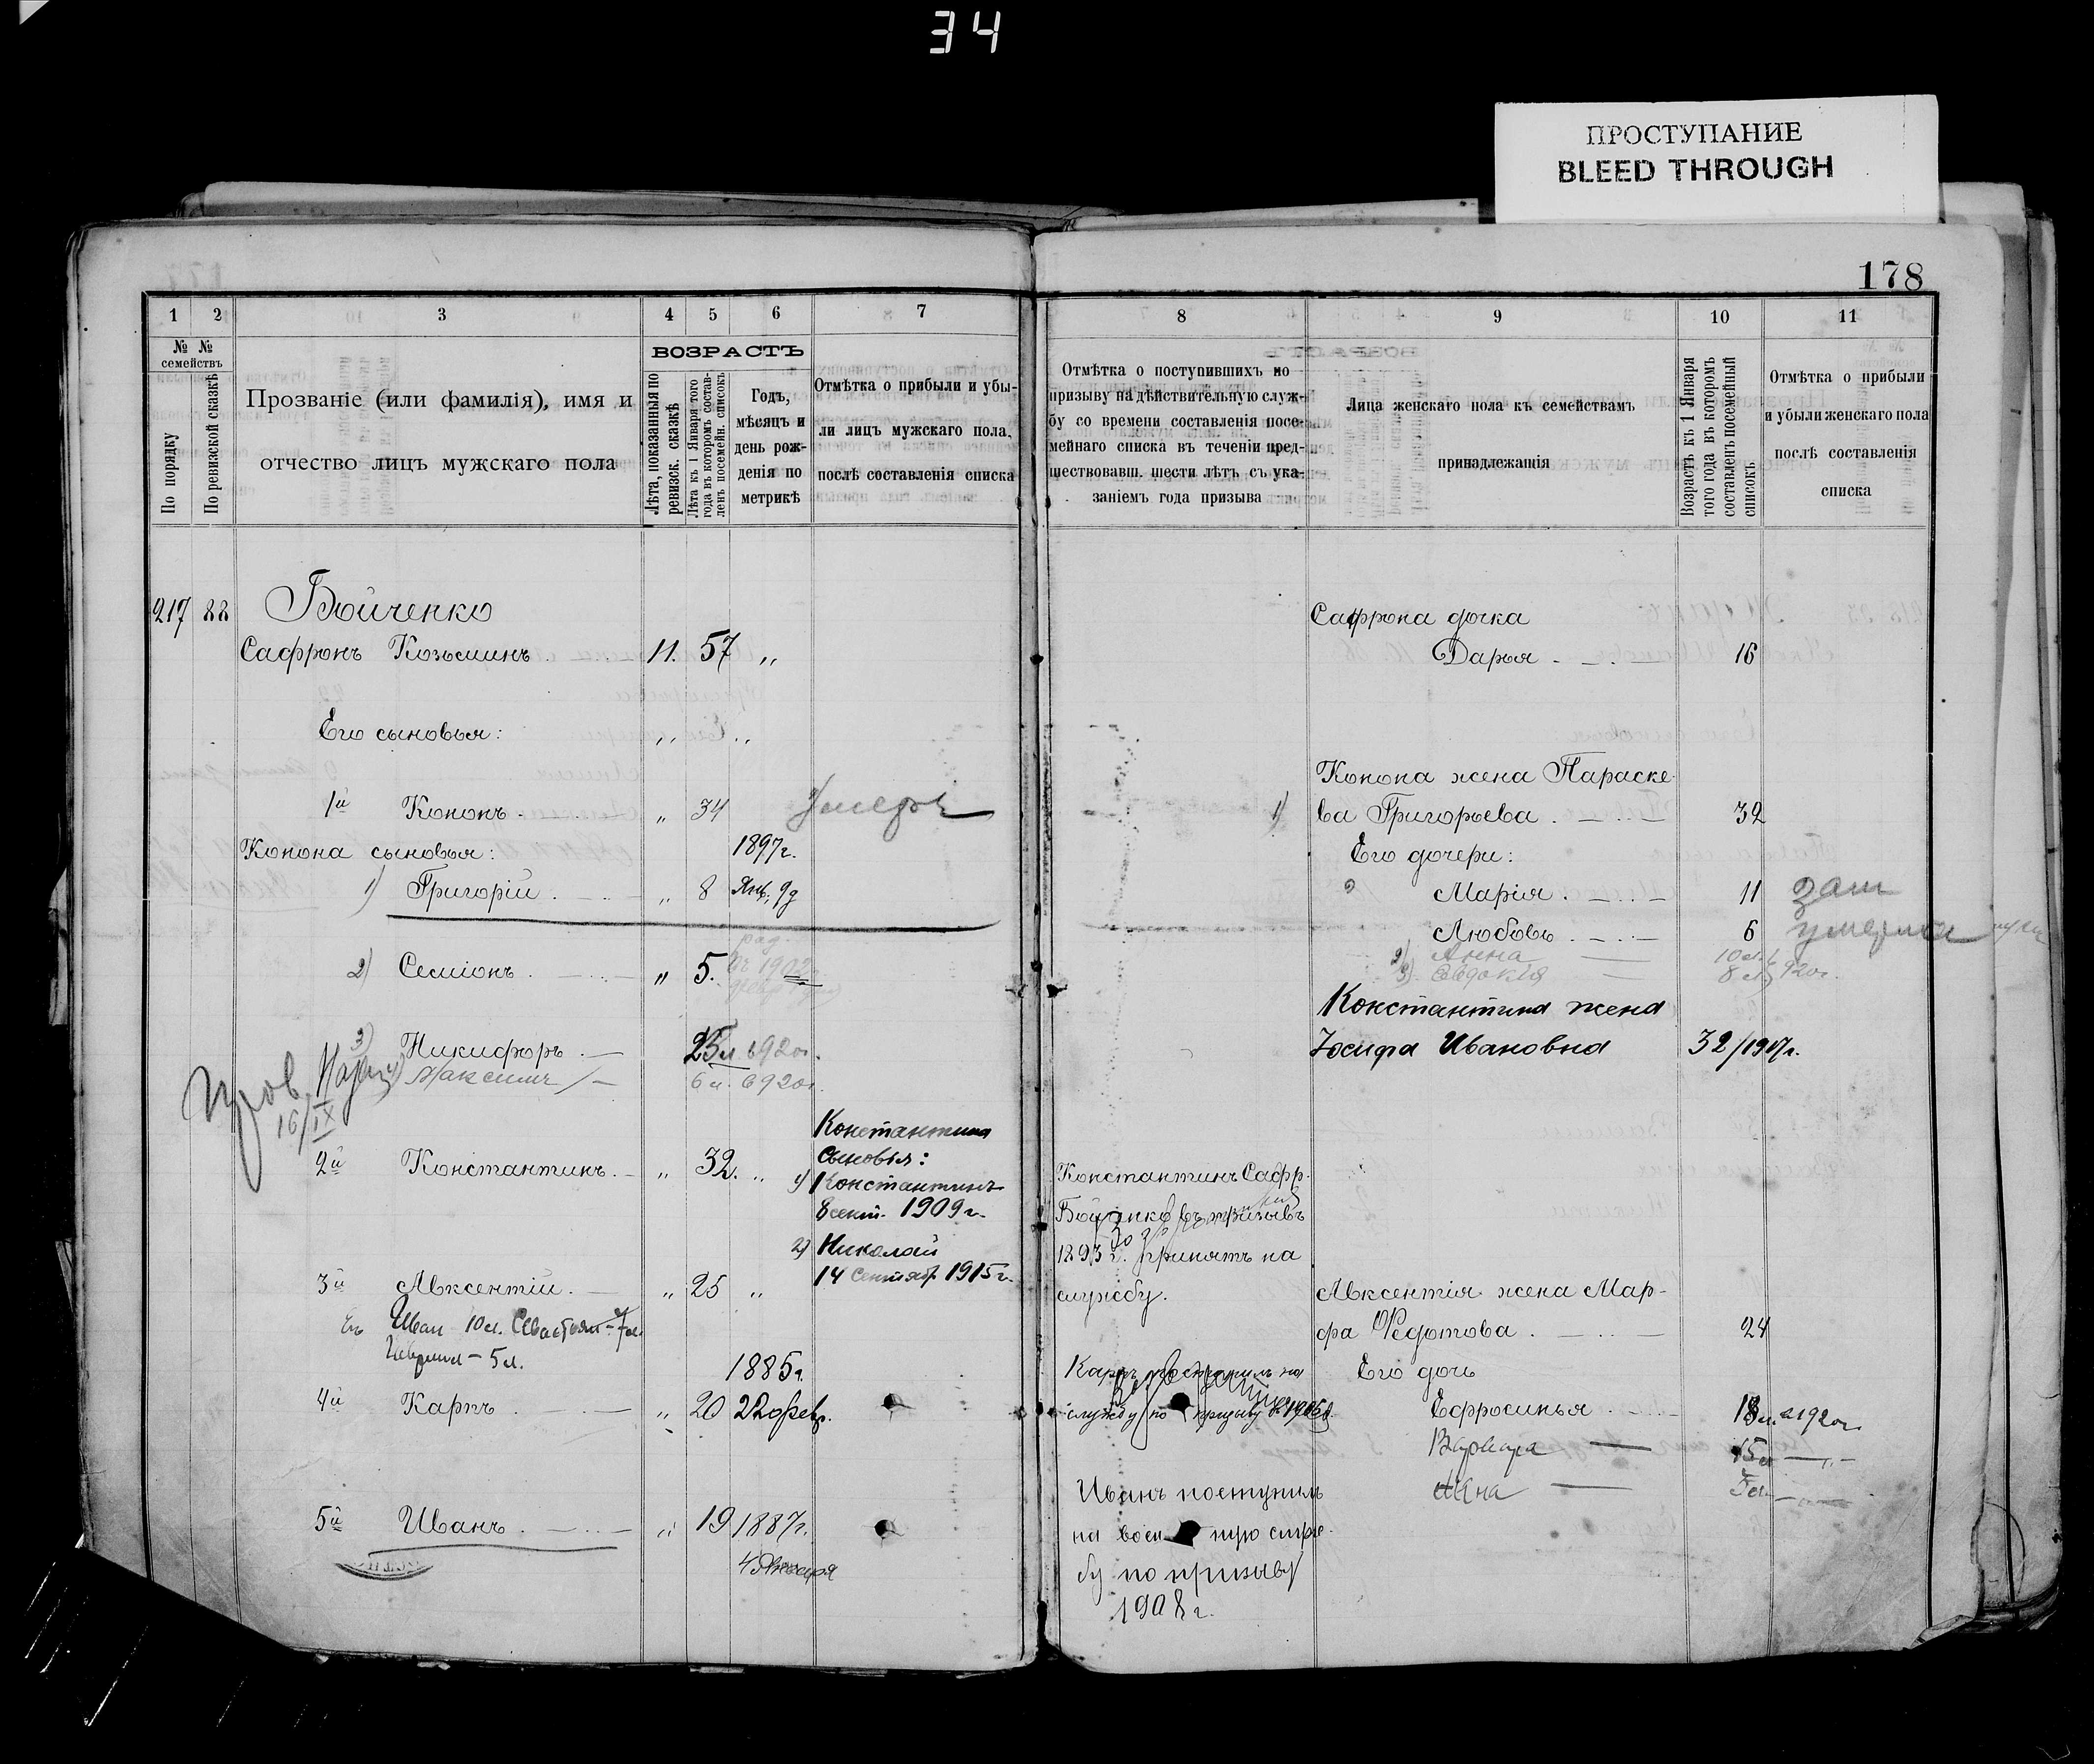 34
ПРОСТУПАНИЕ
BLEED THROUGH
178
1 2 3 4 5 6 7
№ №
семействъ
По порядку
По ревизской сказкѣ
Прозваніе (или фамилія), имя и
отчество лицъ мужскаго пола
ВОЗРАСТЪ
Лѣта, показанныя по
ревизск. сказкѣ
Лѣта къ 1 Января того
года въ которомъ состав-
ленъ посемейн. списокъ
Годъ,
мѣсяцъ и
день рож-
денія по
метрикѣ
Отмѣтка о прибыли и убы-
ли лицъ мужскаго пола,
послѣ составленія списка
217 88 Бойченко
Сафронъ Козьминъ 11. 57 „
Его сыновья: „
1й Кононъ „ 34 Умеръ
Конона сыновья: 1897г.
1) Григорій „ 8 Янв. 9д
2) Семіонъ „ 5. 1902
3) Никифоръ 25 л 692ог.
Максимъ 6 л. 692ог.
16/IX
2й Константинъ „ 32. „
Константина
сыновья:
1) Константинъ
8 сент. 1909 г.
2) Николай
14 Сентябр 1915 г.
3й Авксентій „ 25 „
Иван 10 л. Севастьян - 7 л.
5 л.
1885г.
4й Карпъ „ 20 22 февр.
5й Иванъ „ 19 1887г.
4 Января
8 9 10 11
Отмѣтка о поступившихъ по
призыву на дѣйствительную служ-
бу со времени составленія посе-
мейнаго списка въ теченіи пред-
шествовавш. шести лѣтъ съ ука-
заніемъ года призыва
Лица женскаго пола къ семействамъ
принадлежащія
Возрастъ къ 1 Января
того года въ которомъ
составленъ посемейный
списокъ
Отмѣтка о прибыли
и убыли женскаго пола
послѣ составленія
списка
Сафрона дочка
Дарья 16
Конона жена Параске-
1) ва Григорьева 32
Его дочери:
Марія 11 зам
Любовь 6 умерла
2) Анна 10 л.
3) Евдокія 8 л. 92ог.
Константина жена
Іосифа Ивановна 32/1917г.
Константинъ Сафр.
Бойченко въ призывъ
1893 г. принятъ на
службу.
Авксентія жена Мар-
фа Федотова 24
Карпъ поступилъ на
службу по призыву 1906
Его дочь
Ефросинья 18 л. 192ог
Варвара 15 л
Анна
Иванъ поступилъ
на военную служ-
бу по призыву
1908 г.